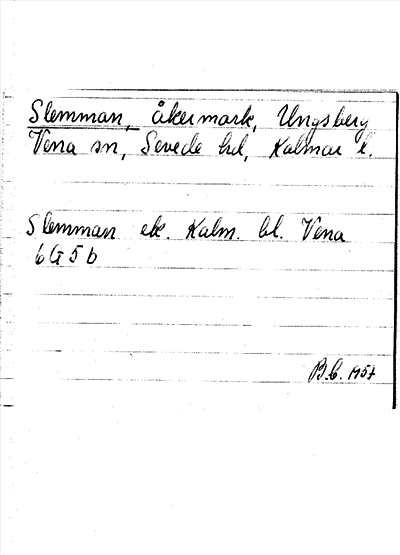 Slemman, åkermark, Ungsberg
Vena sn, Sevede hd, Kalmar l.
Slemman ek. Kalm. bl. Vena
6 G 5 b
B.C. 1957